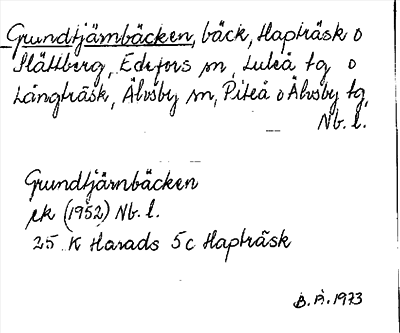 Grundtjärnbäcken, bäck, Hapträsk o
Slättberg, Edefors sn, Luleå tg o
Långträsk, Älvsby sn, Piteå o Älvsby tg,
Nb. l.
Grundtjärnbäcken
ek (1952) Nb. l.
25 K Harads 5c Hapträsk
B. Å. 1973